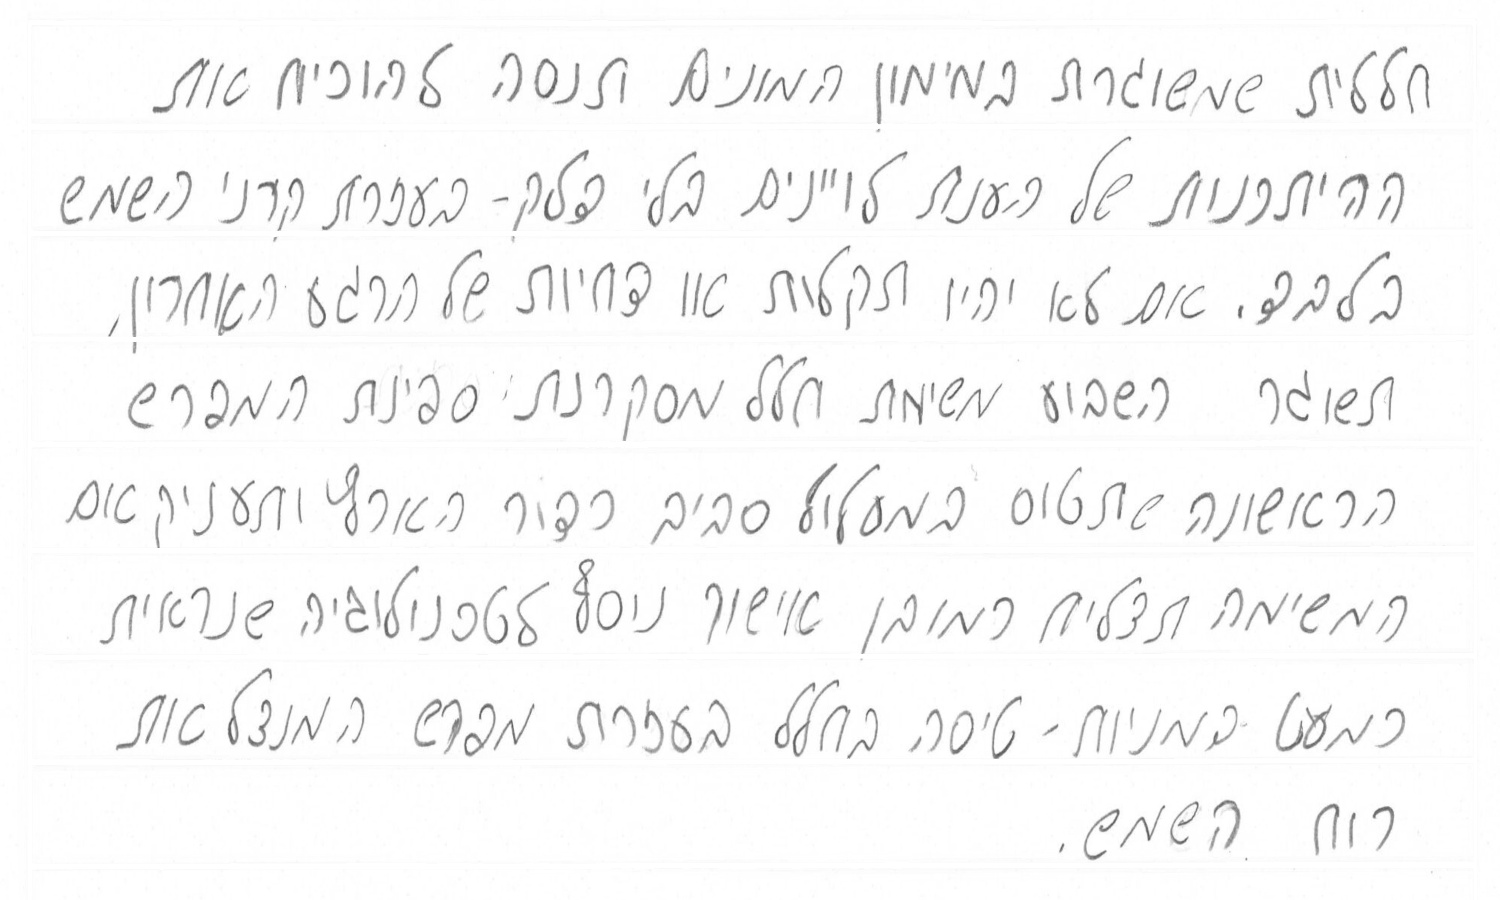 חללית שמשוגרת במימון המונים תנסה להוכיח את
ההיתכנות של הענת לויינים בלי דלק- בעזרת קרני השמש
בלבד. אם לא יהיו תקלות או דחיות של הרגע האחרון,
תשוגר השבוע משימת חלל מסקרנת: ספינת המפרש
הראשונה שתטוס במעלול סביב כדור הארץ ותעניק אם
המשימה תצליח כמובן אישור נוסף לטכנולוגיה שנראית
כמעט כמניות- טיסה בחלל בעזרת מפרש המנצל את
רוח השמש.